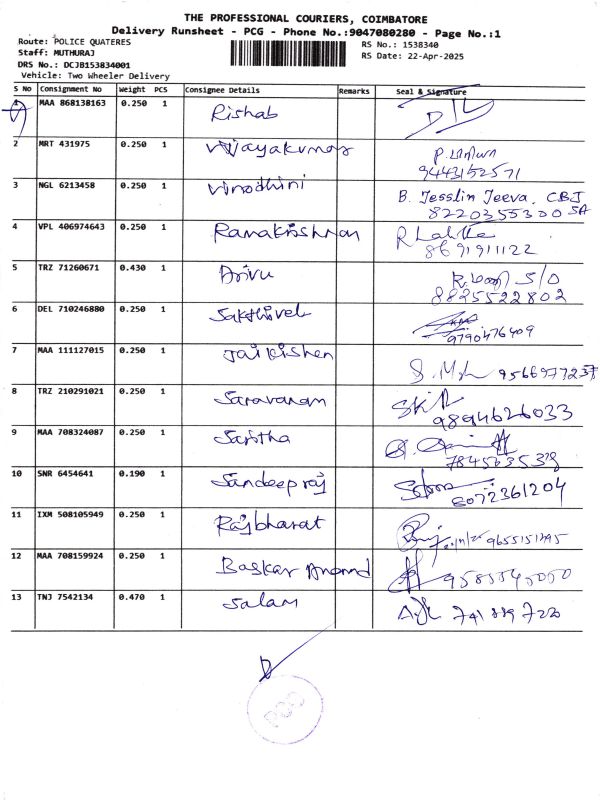 THE PROFESSIONAL COURIERS, COIMBATORE
Delivery Runsheet - PCG - Phone No.:9047080280 - Page No.:1
Route: POLICE QUATERES
Staff: MUTHURAJ
DRS No.: DCJB153834001
Vehicle: Two Wheeler Delivery
RS No.: 1538340
RS Date: 22-Apr-2025
S No Consignment No Weight PCS Consignee Details Remarks Seal & Signature
1 MAA 868138163 0.250 1 Rishab
2 MRT 431975 0.250 1 Vijayakumar
9443152571
3 NGL 6213458 0.250 1 Vinodhini B. Jesslin Jeeva, CBI
8220355300 SA
4 VPL 406974643 0.250 1 Ramakrishnan R Lalitha
8691911122
5 TRZ 71260671 0.430 1 Arivu S/O
8825522802
6 DEL 710246880 0.250 1 Sakthivel
9790476409
7 MAA 111127015 0.250 1 Jaikishen 9566977237
8 TRZ 210291021 0.250 1 Saravanan
9894626033
9 MAA 708324087 0.250 1 Saritha
10 SNR 6454641 0.190 1 Sandeepraj
8072361204
11 IXM 508105949 0.250 1 Rajbharat
12 MAA 708159924 0.250 1 Baskar Anand
13 TNJ 7542134 0.470 1 Salam
POD